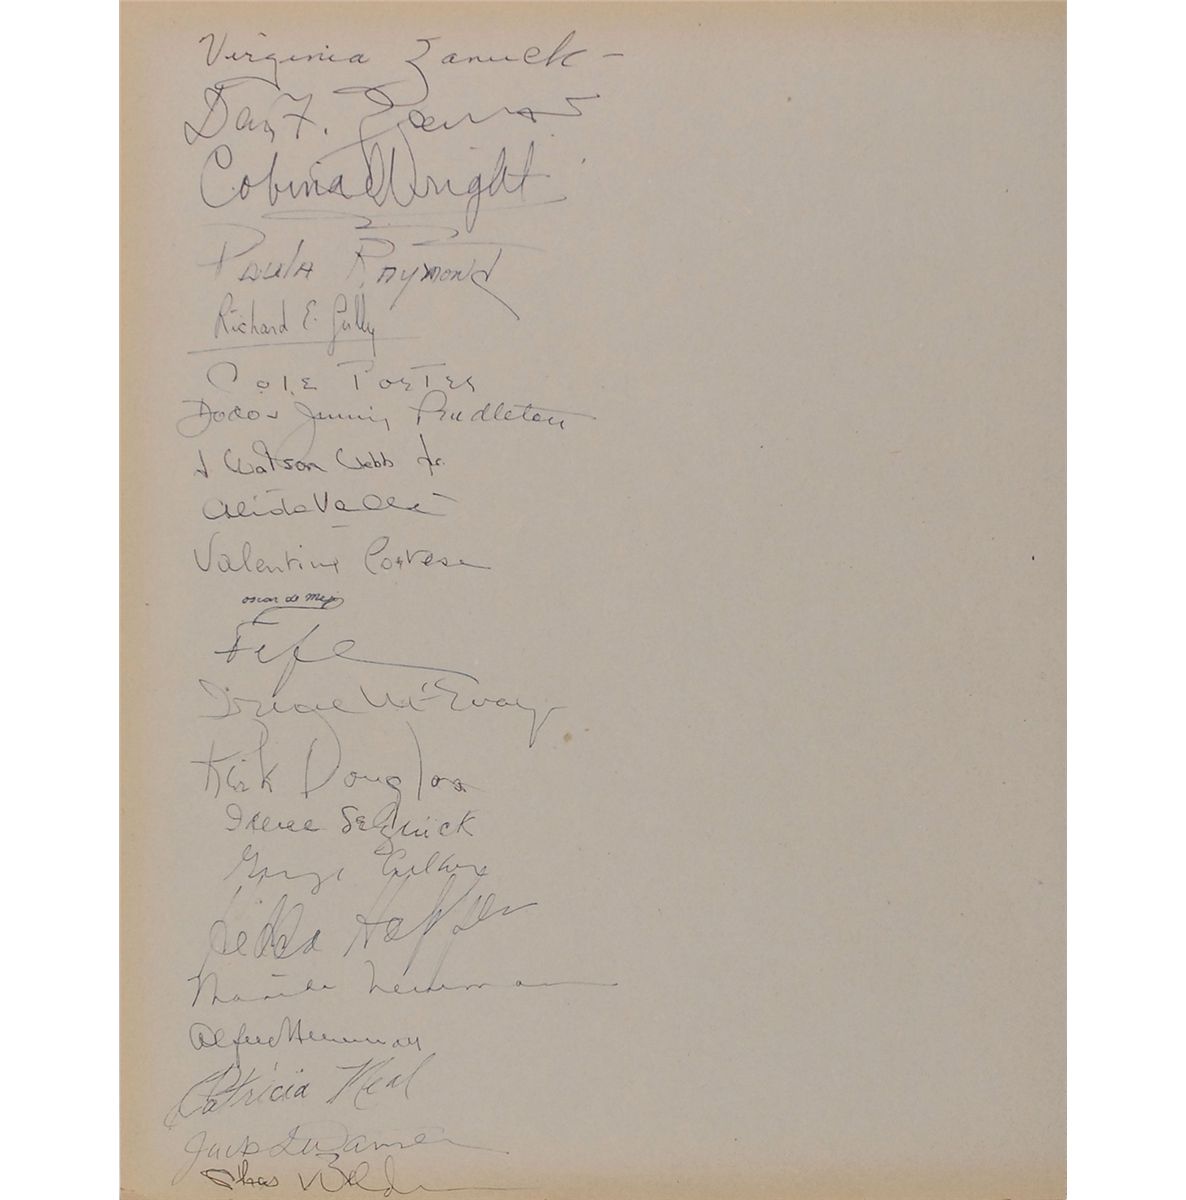 Virginia Zanuck –
Cobina Wright
Paula Raymond
Richard E. Gully
Cole Porter
Pendleton
J Watson Webb Jr.
Alida Valli
Valentina Cortesa
oscar de mejo
Fefe
McEvoy
Kirk Douglas
Irene Selznick
George Cukor
Hedda Hopper
Newman
Alfred Newman
Patricia Neal
Jack L Warner
Chas